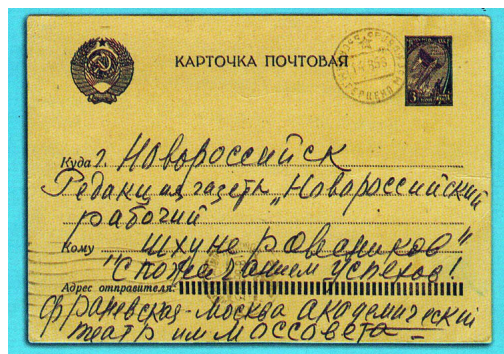 КАРТОЧКА ПОЧТОВАЯ
Куда г. Новороссийск
Редакция газеты „Новороссийский
рабочий
Кому шхуне ровесников"
"С пожеланием успехов!
Адрес отправителя:
Москва академический
театр им Моссовета